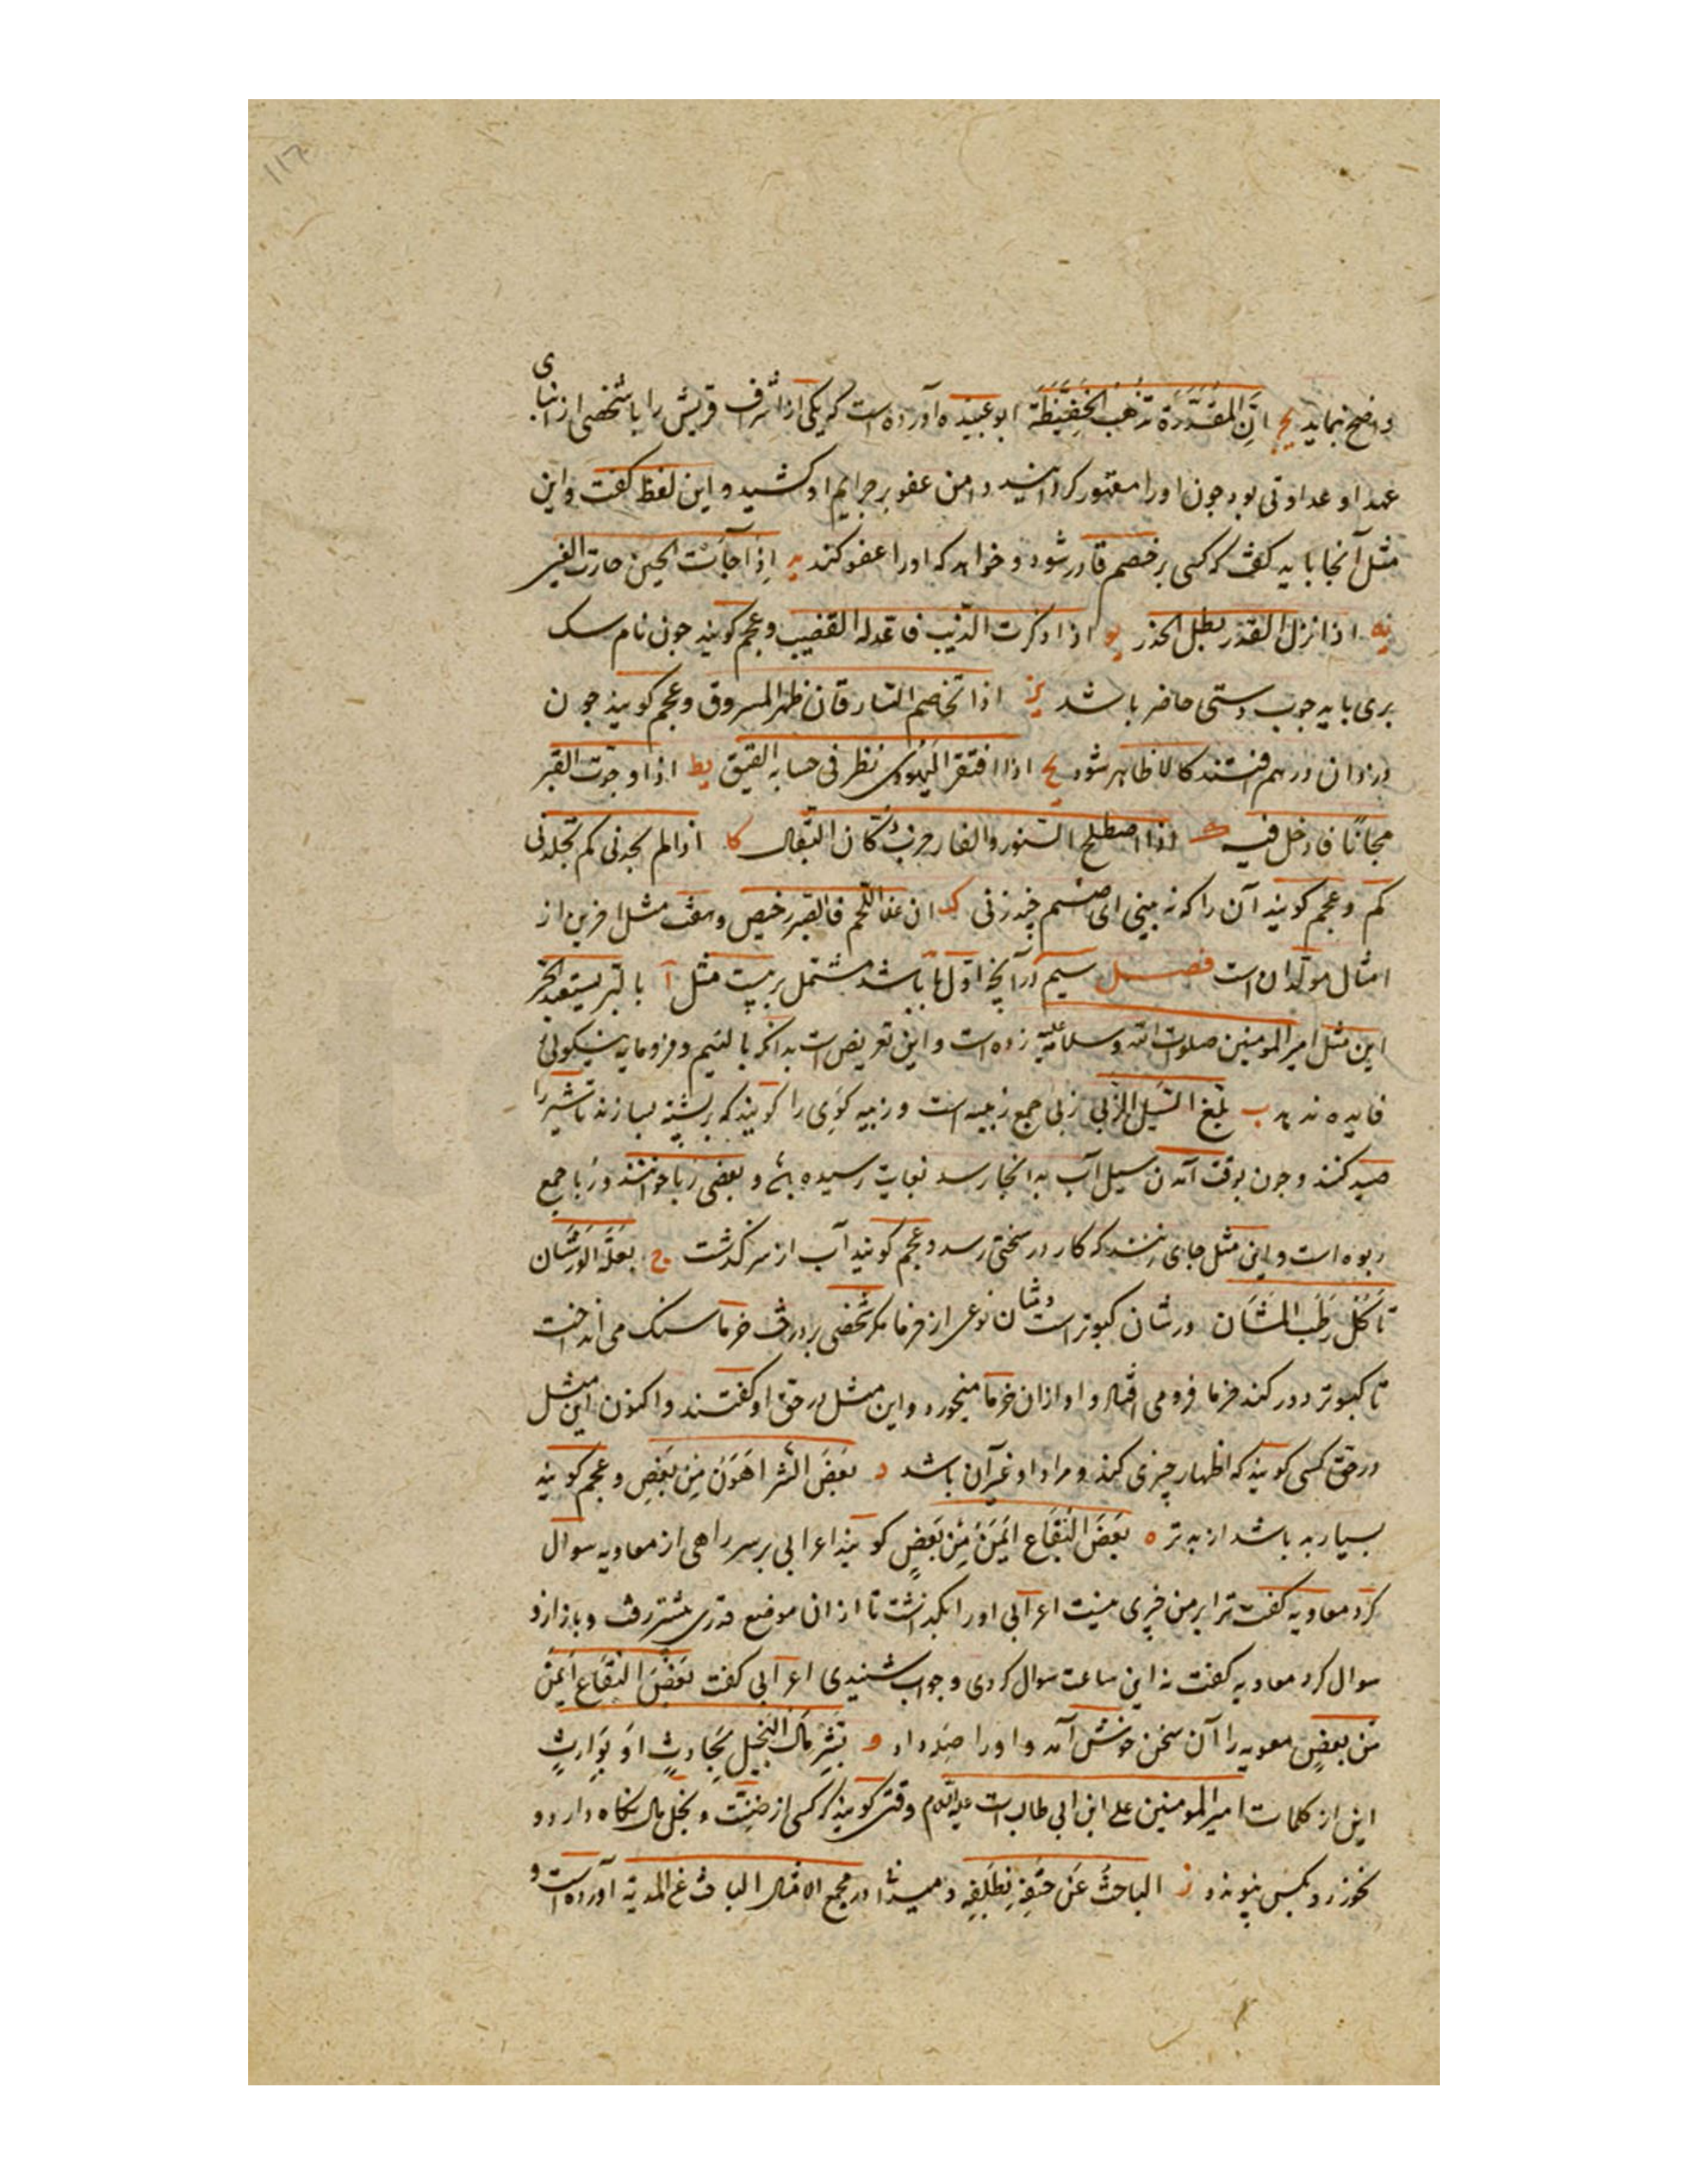 ۱۱۶
واضح نماید یج انّ المقدرة تذهب الحفیظة ابو عبیده آورده است که یکی از اشراف قریش را با شخصی از ابنای
عهد او عداوتی بود چون اورا مقهور کردانید دامن عفو بر جرایم او کشید و این لفظ کفت و این
مثل آنجا باید کفت که کسی بر خصم قادر شود و خواهد که اورا عفو کند ید اذا جاءت الحین حارت العین
یه اذا نزل القدر بطل الحذر یو اذا ذکرت الذیب فاعد له القضیب و عجم کویند چون نام سک
بری باید چوب دستی حاضر باشد یز اذا تخاصم السارقان ظهر المسروق و عجم کویند چون
دزدان در هم افتند کالا ظاهر شود یح اذا افتقر الیهودی نظر فی حسابه العتیق یط اذا وجدت القبر
مجانًا فادخل فیه ک اذا اصطلح السنور والفار خرب دکان البقال کا اذا لم یجدنی کم تجلدنی
کم و عجم کویند آن را که نه بینی ای صنم چند زنی کب ان غلا اللحم فالصبر رخیص و هفت مثل اخرین از
امثال مولدان است فصل سیم در آنچه اوّل با باشد مشتمل بر بیست مثل آ بالبر یستعبد الحر
این مثل امیر المومنین صلوات الله و سلامه علیه زده است و این تعریض است بدانکه با لئیم و فرومایه نیکوئی
فایده ندهد ب بلغ السیل الزبی زبی جمع زبیه است و زبیه کوی را کویند که بر پشته بسازند تا شیر را
صید کنند و چون بوقت آمدن سیل آب بدانجا رسد بغایت رسیده باشد و بعضی ربا خوانند و ربا جمع
ربوه است و این مثل جای زنند که کار در سختی رسد و عجم کویند آب از سر کذشت ج بعلة الورشان
تاکل رطب المشان ورشان کبوتر است و مشان نوعی از خرما مکر شخصی بر درخت خرما سنک می انداخت
تا کبوتر دور کند خرما فرو می افتاد و او ازان خرما میخورد و این مثل در حق او کفتند و اکنون این مثل
در حق کسی کویند که اظهار چیزی کند و مراد او غیر آن باشد د بعض الشر اهون من بعض و عجم کویند
بسیار به باشد از به تر ه بعض البقاع ایمن من بعض کویند اعرابی بر سر راهی از معاویه سوال
کرد معاویه کفت ترا بر من چیزی نیست اعرابی اورا بکذاشت تا ازان موضع قدری بیشتر رفت و باز ازو
سوال کرد معاویه کفت نه این ساعت سوال کردی و جواب شنیدی اعرابی کفت بعض البقاع ایمن
من بعض معویه را آن سخن خوش آمد و اورا صله داد و بشر مال البخیل بحادث او بوارث
این از کلمات امیر المومنین علی ابن ابی طالب است علیه السلام وقتی کویند که کسی از ضنت و بخل مال نکاه دارد و
نخورد و بکس نپیوندد ز الباحث عن حتفه بظلفه و میدانی در مجمع الامثال الباحث عن المدیة آورده است و